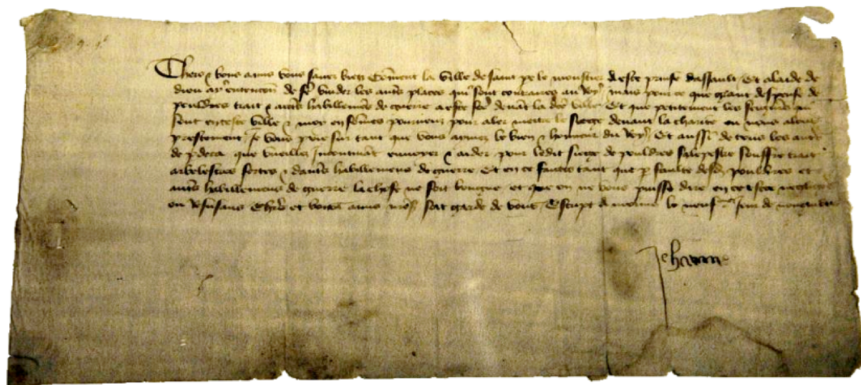 Chers & bons amis vous savez bien comment la ville de saint pere le moustier a este prinse dassault Et a laide de
dieu ay entencion de fere vuider les autres places qui sont contraires au Roy mais pour ce que grant despense de
pouldres trait & autres habillemens de guerre a este fete devant lad ville Et que petitement les seigneurs qui
sont en ceste ville & moy en sommes pourveuz pour aler mettre le siege devant la charite ou nous alons
prestement Je vous prie sur tant que vous aymez le bien & honneur du Roy Et aussi de tous les autres
de p deca que vueillez incontinant envoyer & aider pour ledit siege de pouldres salepestre souffre trait
arbelestres fortes & dautres habillemens de guerre Et en ce faictes tant que p faulte desd pouldres et
autres habillemens de guerre la chose ne soit longue et que on ne vous puisse dire en ce estre negligens
ou Refusans Chiers et bons amis nre s soit garde de vous Escript a molins le neufme jour de novembre
Jehanne